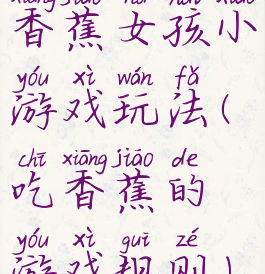 xiāng jiāo nǚ hái xiǎo
香蕉女孩小
yóu xì wán fǎ
游戏玩法(
chī xiāng jiāo de
吃香蕉的
yóu xì guī zé
游戏规则)